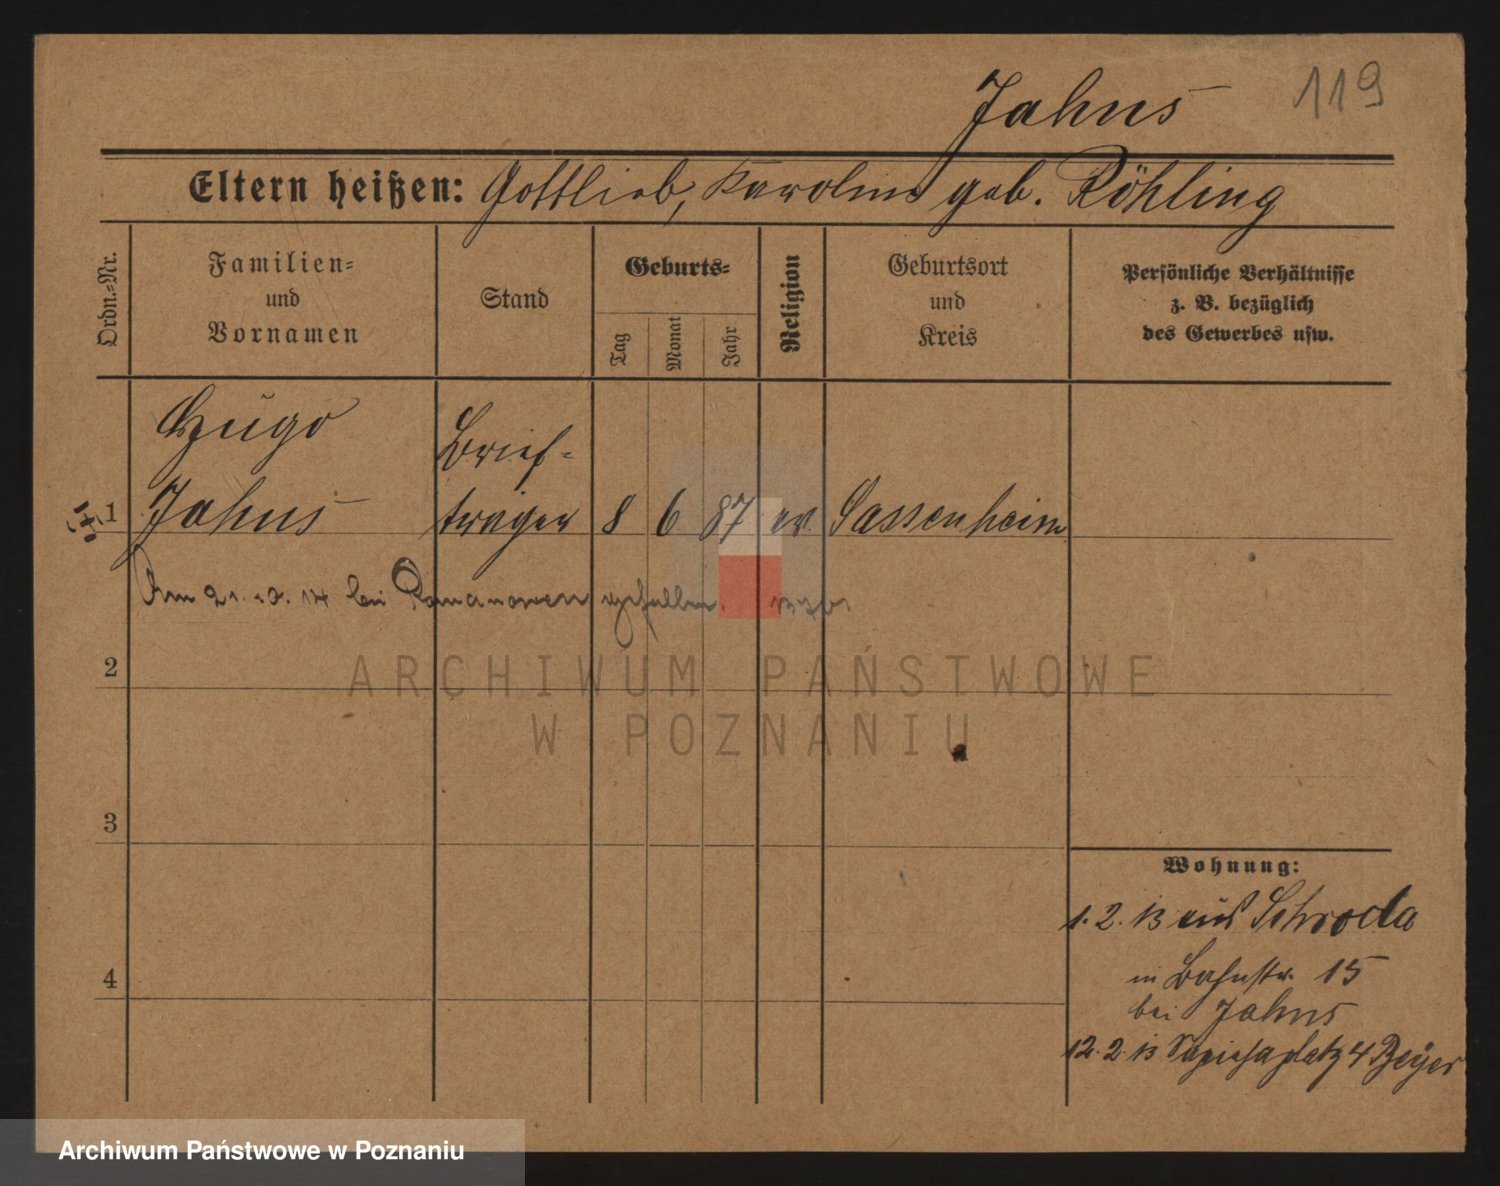 Jahns 119
Eltern heißen: Gottlieb, Karoline geb. Röhling
Ordn.=Nr.
Familien=
und
Vornamen
Stand
Geburts=
Tag
Monat
Jahr
Religion
Geburtsort
und
Kreis
Persönliche Verhältnisse
z. B. bezüglich
des Gewerbes usw.
Hugo
Jahns
Brief=
träger
1
8 6 87 ev. Sassenheim
Am 21.10.14 bei gefallen.
2
3
4
Wohnung:
1.2.13 aus Schroda
in Bahnstr. 15
bei Jahns
12.2.13 Sapiehaplatz 4 Beyer
ARCHIWUM PAŃSTWOWE
W POZNANIU
Archiwum Państwowe w Poznaniu